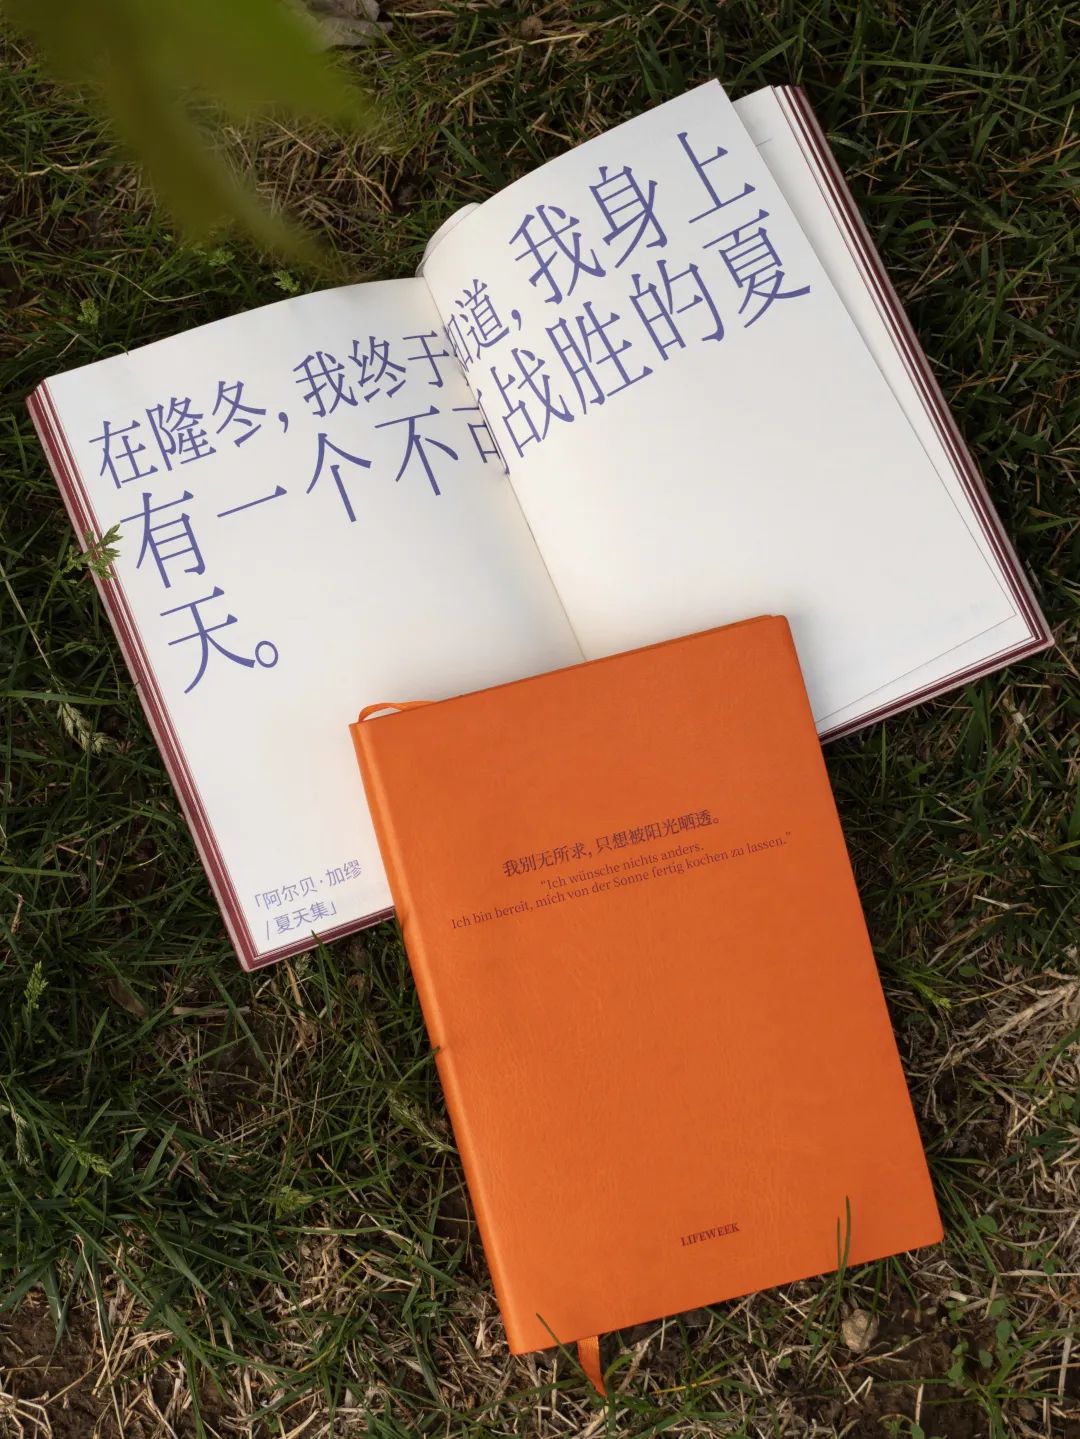 在隆冬，我终于知道，我身上
有一个不可战胜的夏
天。
「阿尔贝·加缪
/ 夏天集」
我别无所求，只想被阳光晒透。
"Ich wünsche nichts anders.
Ich bin bereit, mich von der Sonne fertig kochen zu lassen."
LIFEWEEK